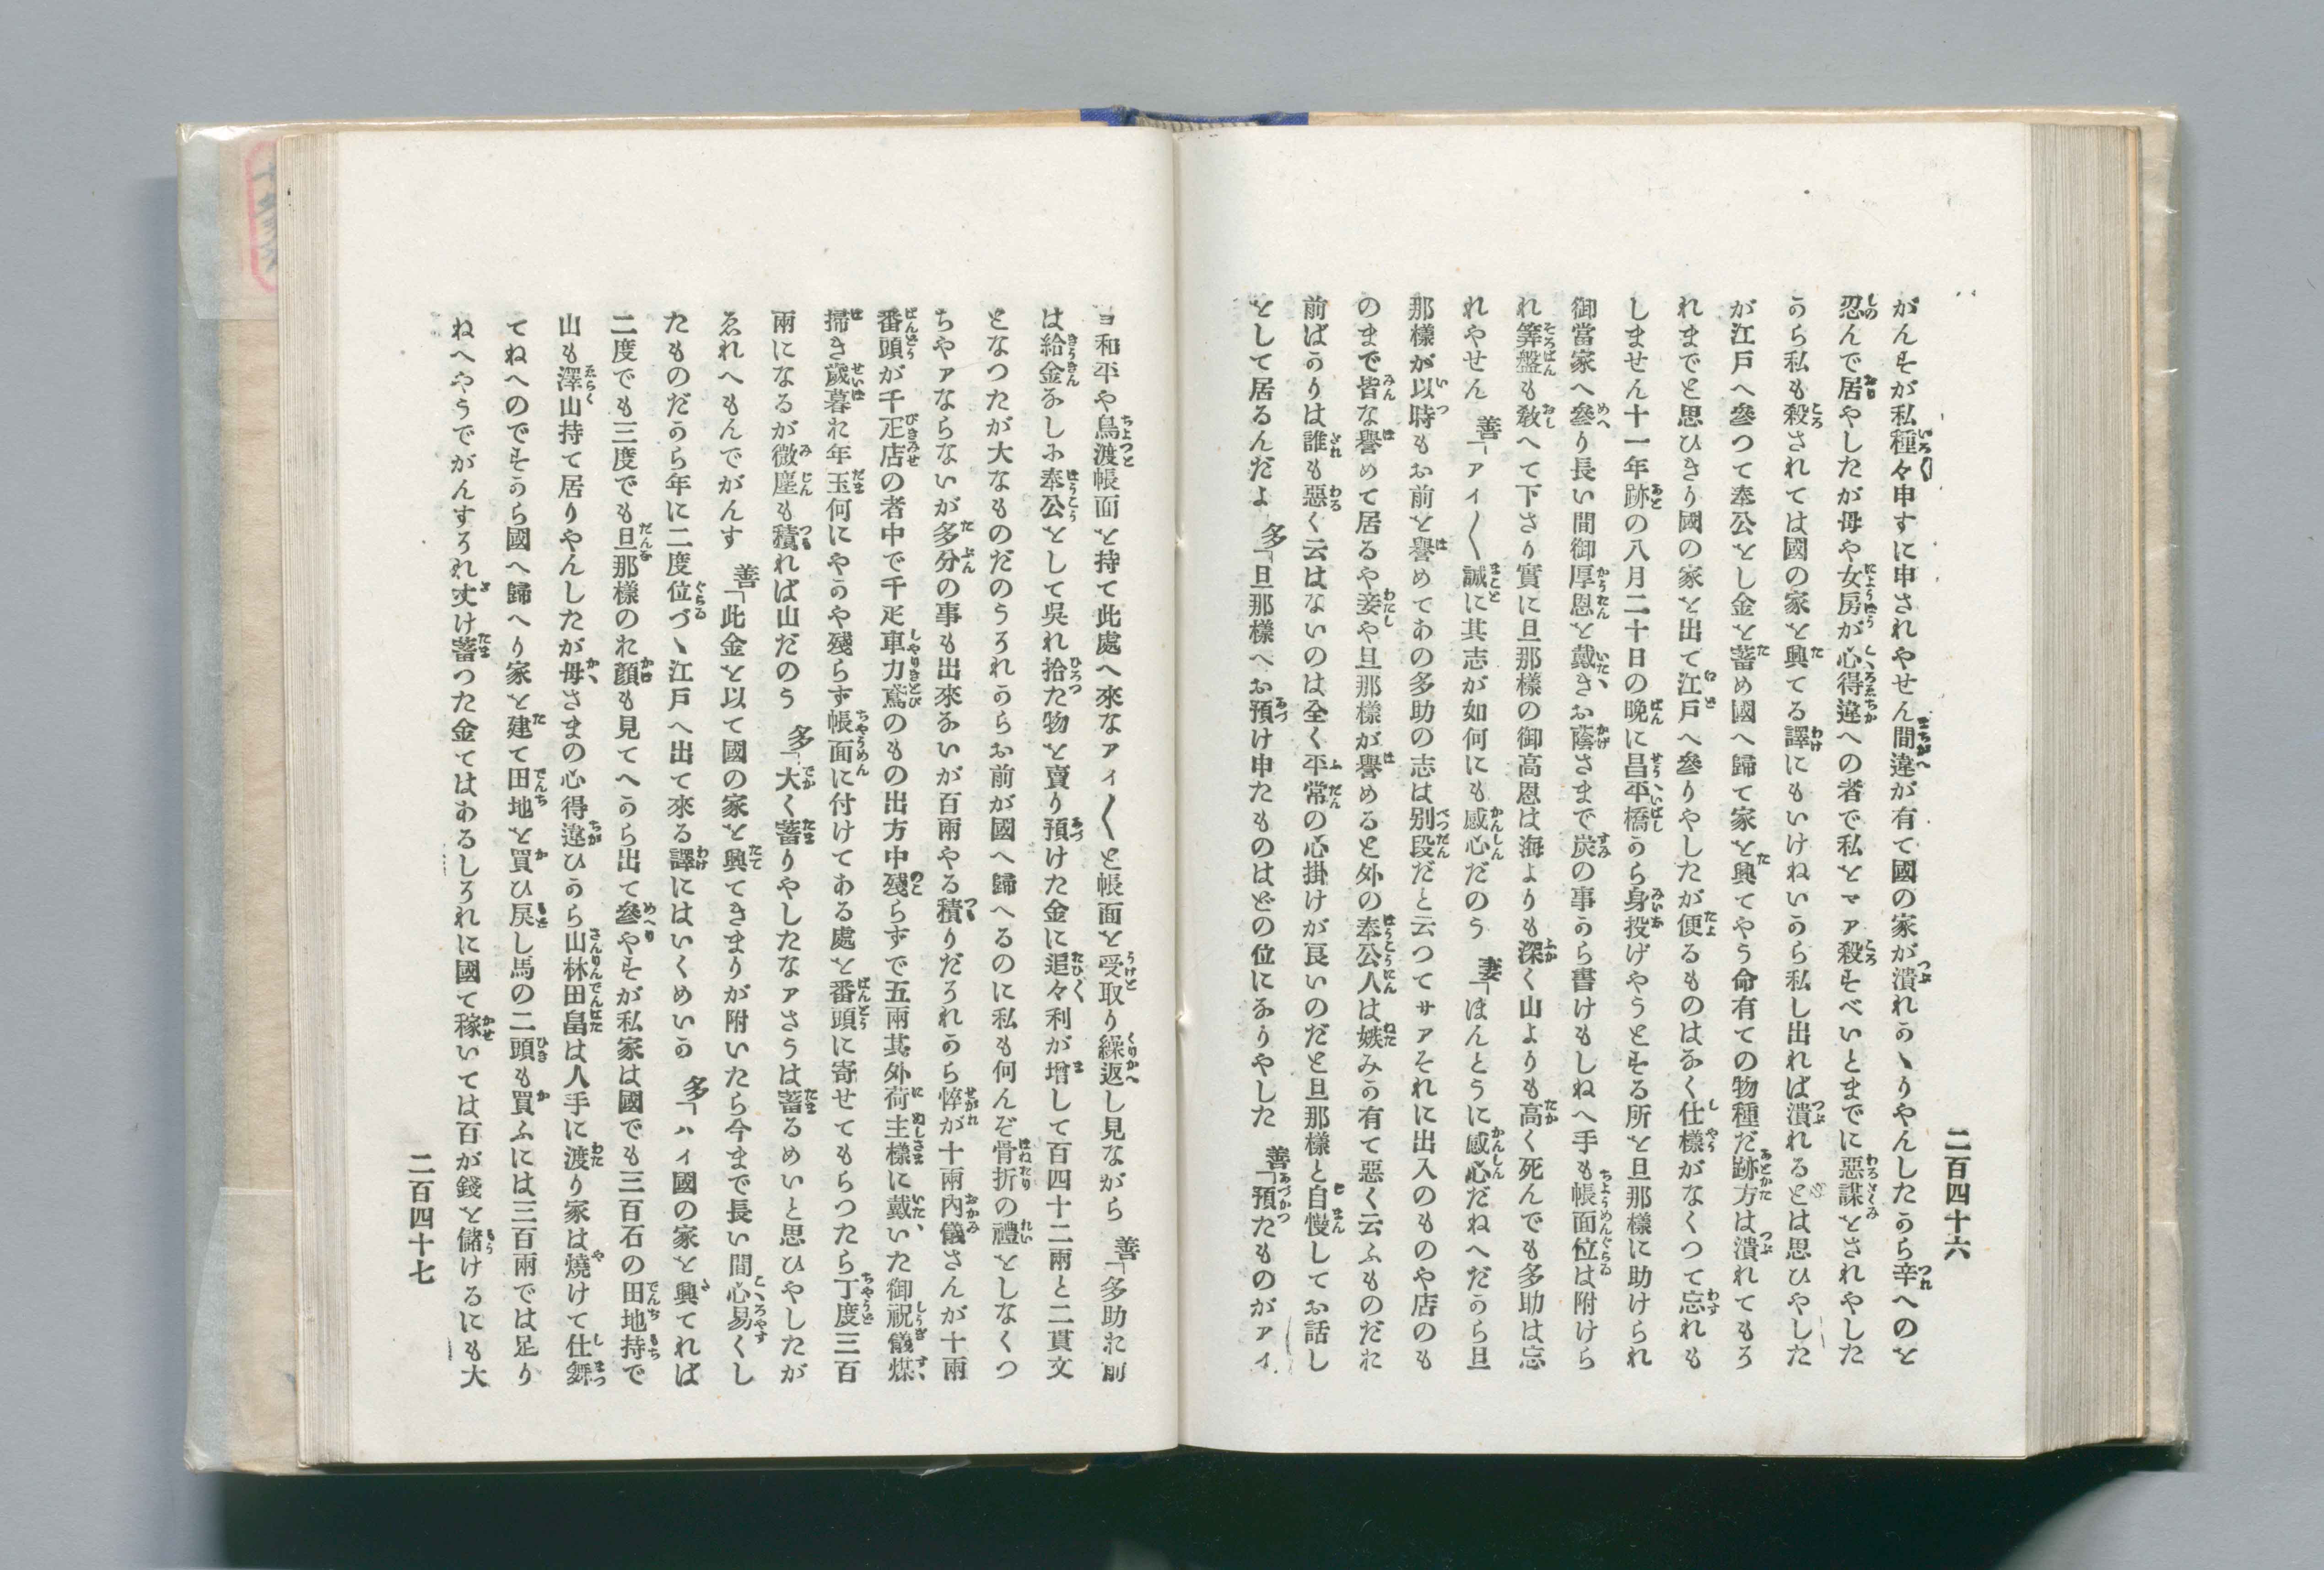 二百四十六
がんすが私種々申すに申されやせん間違が有て國の家が潰れかゝりやんしたから辛へのを
忍んで居やしたが母や女房が心得違への者で私をマァ殺すべいとまでに惡謀をされやした
から私も殺されては國の家を興てる譯にもいけねいから私し出れば潰れるとは思ひやした
が江戸へ參つて奉公をし金を蓄め國へ歸て家を興てやう命有ての物種だ跡方は潰れてもそ
れまでと思ひきり國の家を出て江戸へ參りやしたが便るものはなく仕樣がなくつて忘れも
しません十一年跡の八月二十日の晩に昌平橋から身投げやうとする所を旦那樣に助けられ
御當家へ參り長い間御厚恩を戴きお蔭さまで炭の事から書けもしねへ手も帳面位は附けら
れ筭盤も敎へて下さり實に旦那樣の御高恩は海よりも深く山よりも高く死んでも多助は忘
れやせん 善「アイ〱誠に其志が如何にも感心だのう 妻「ほんとうに感心だねへだから旦
那樣が以時もお前を譽めてあの多助の志は別段だと云つてサァそれに出入のものや店のも
のまで皆な譽めて居るや妾や旦那樣が譽めると外の奉公人は嫉みか有て惡く云ふものだお
前ばかりは誰も惡く云はないのは全く平常の心掛けが良いのだと旦那樣と自慢してお話し
をして居るんだよ 多「旦那樣へお預け申たものはどの位になりやした 善「預たものがァイ
ヨ和平や鳥渡帳面を持て此處へ來なァイ〱と帳面を受取り繰返し見ながら 善「多助お前
は給金なしふ奉公をして呉れ拾た物を賣り預けた金に追々利が增して百四十二兩と二貫文
となつたが大なものだのうそれからお前が國へ歸へるのに私も何んぞ骨折の禮をしなくつ
ちやァならないが多分の事も出來ないが百兩やる積りだそれから悴が十兩內儀さんが十兩
番頭が千疋店の者中で千疋車力鳶のもの出方中殘らずで五兩其外荷主樣に戴いた御祝儀煤
掃き歲暮お年玉何にやかや殘らず帳面に付けてある處を番頭に寄せてもらつたら丁度三百
兩になるが微塵も積れば山だのう 多「大く蓄りやしたなァさうは蓄るめいと思ひやしたが
ゑれへもんでがんす 善「此金を以て國の家を興てきまりが附いたら今まで長い間心易くし
たものだから年に二度位づゝ江戸へ出て來る譯にはいくめいか 多「ハイ國の家を興てれば
二度でも三度でも旦那樣のお顏も見てへから出て參やすが私家は國でも三百石の田地持で
山も澤山持て居りやんしたが母さまの心得違ひから山林田畠は人手に渡り家は燒けて仕舞
てねへのですから國へ歸へり家を建て田地を買ひ戾し馬の二頭も買ふには三百兩では足り
ねへやうでがんすそれ丈け蓄つた金てはあるしそれに國て稼いては百が錢を儲けるにも大
二百四十七